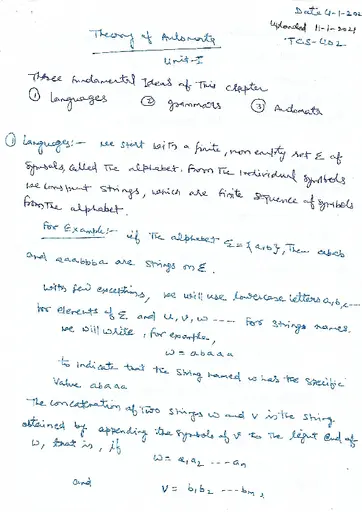 Date 4-1-202
Uploaded 11-1-2021
TCS-402
Theory of Automata
Unit-I
Three fundamental Ideas of This chapter
① Languages ② grammars ③ Automata
① Languages:- we start with a finite, nonempty set Σ of
symbols, called the alphabet. From the individual symbols
we construct strings, which are finite sequence of symbols
from the alphabet.
For Example:- if the alphabet Σ = {a,b}, Then abab
and aaabbba are strings on Σ.
with few exceptions, we will use lowercase letters a,b,c---
for elements of Σ and u,v,w ---- for strings names.
we will write, for example,
w = abaaa
to indicate that the string named w has the specific
value abaaa
The concatenation of Two strings w and v is the string
obtained by appending the symbols of v to the right end of
w, that is, if
w = a₁a₂ --- an
and
v = b₁b₂ --- bm,